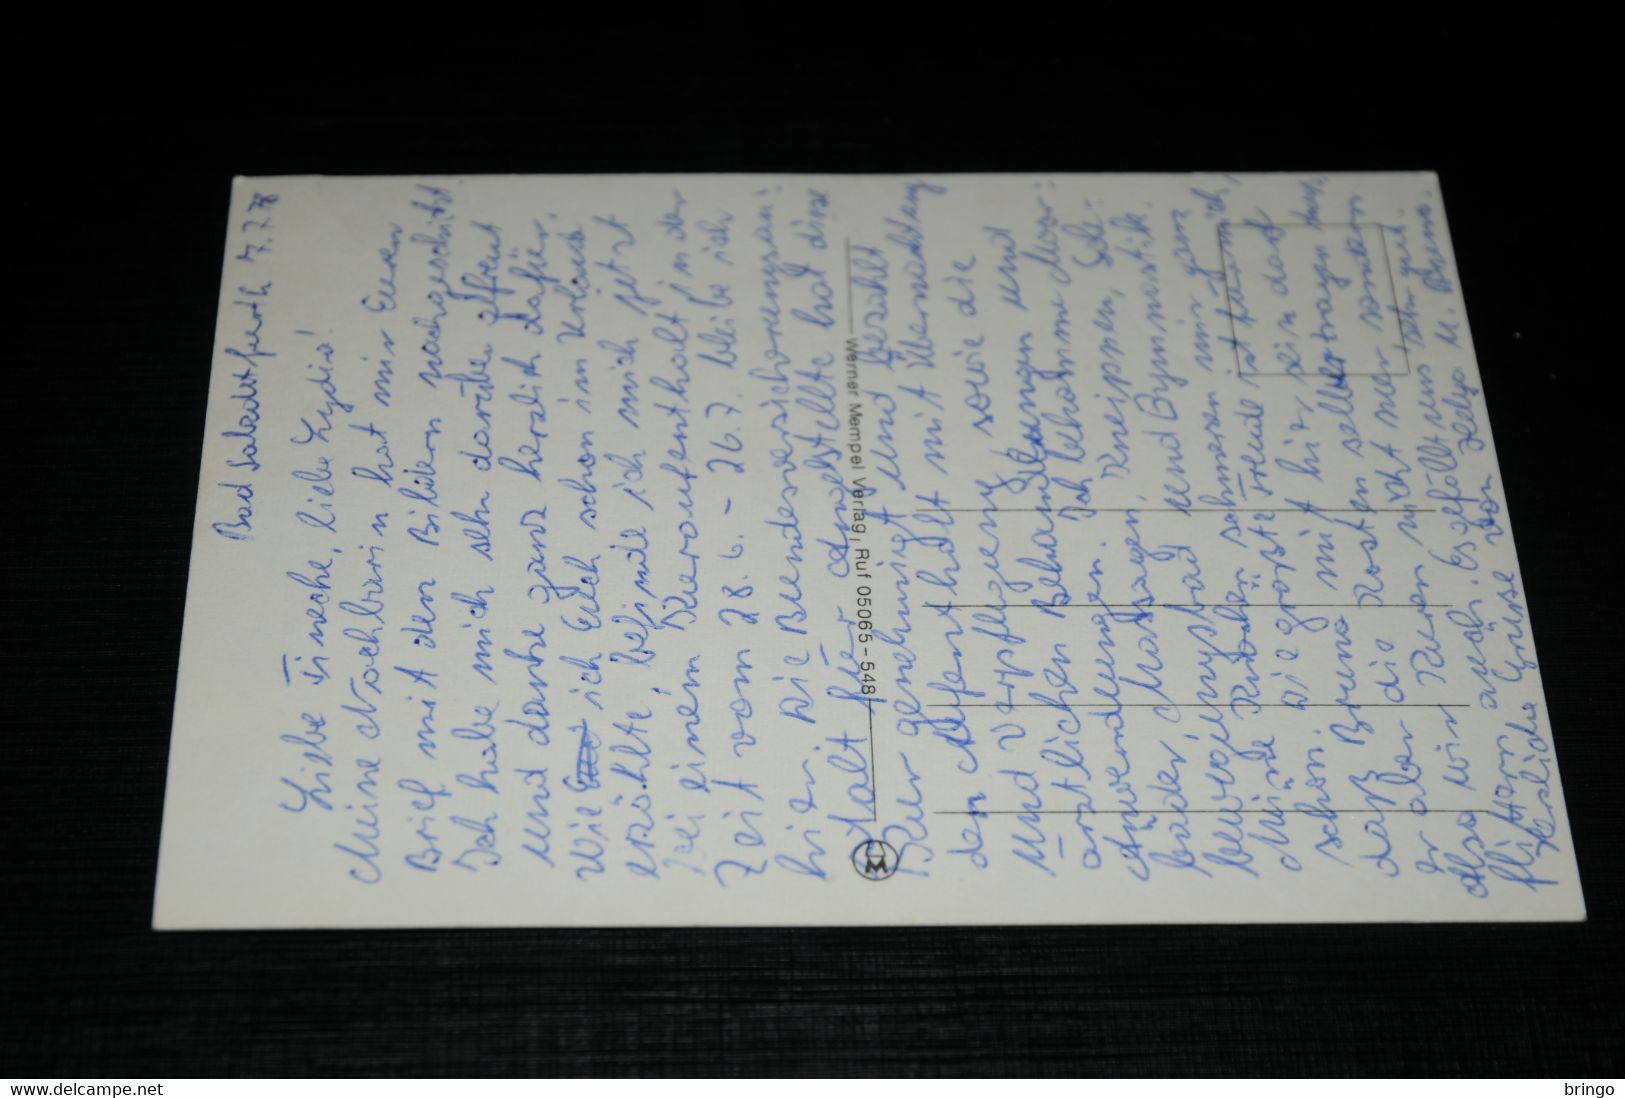 Bad Salzdetfurth 7.7.78
Liebe Tineche, liebe Lydia!
Meine Nachbarin hat mir Euren
Brief mit den Bildern nachgeschickt.
Ich habe mich sehr darüber gefreut
und danke ganz herzlich dafür.
Wie ich Euch schon im Urlaub
erzählte, befinde ich mich jetzt
zei einem Kuraufenthalt in der
Zeit vom 28.6. – 26.7. bleibe ich
hier. Die Bundesversicherungsan:
stalt für Angestellte hat diese
Kur genehmigt und bezahlt
den Aufenthalt mit Übernachtung
und Verpflegung sowie die
ärztlichen Behandlungen und
Anwendungen. Ich bekomme Moor:
bäder, Massagen, Kneippen, Sole:
bewegungsbad und Gymnastik.
Müde Knochen schmerzen mir ganz
schon. Die größte Freude ist
daß Bruno mit hier sein darf
er aber die Kosten selbertragen muss,
Also wir Kuren nicht mer sondern
flittern auch. Es gefällt uns sehr gut.
Herzliche Grüsse von Helga u. Bruno.
Werner Mempel Verlag, Ruf 05065 – 548
M
delcampe.net
bringo